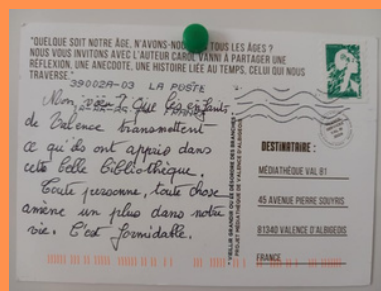 "QUELQUE SOIT NOTRE ÂGE, N'AVONS-NOUS TOUS LES ÂGES ?
NOUS VOUS INVITONS AVEC L'AUTEUR CAROL VANNI À PARTAGER UNE
RÉFLEXION, UNE ANECDOTE, UNE HISTOIRE LIÉE AU TEMPS, CELUI QUI NOUS
TRAVERSE."
39002A-03 LA POSTE
Mon vœu ? que les enfants
de Valence transmettent
ce qu'ils ont appris dans
cette belle bibliothèque.
Toute personne, toute chose
amène un plus dans notre
vie. C'est formidable.
"VIEILLIR GRANDIR OU LE DÉSORDRE DES BRANCHES"
PROJET MÉDIATHÈQUE DE VALENCE D'ALBIGEOIS
DESTINATAIRE :
MÉDIATHÈQUE VAL 81
45 AVENUE PIERRE SOUYRIS
81340 VALENCE D'ALBIGEOIS
FRANCE